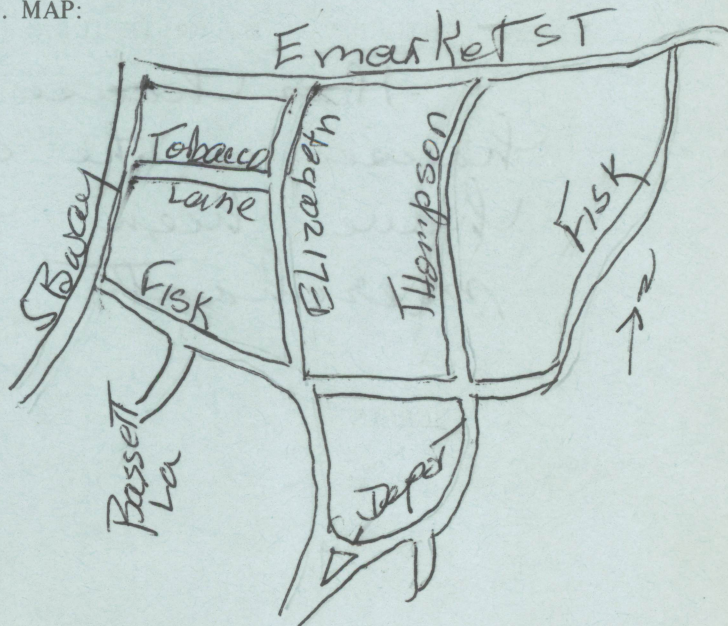 . MAP:
E market ST
Tobacco
Lane
Elizabeth
Thompson
Fisk
Fisk
Bassett
La
N